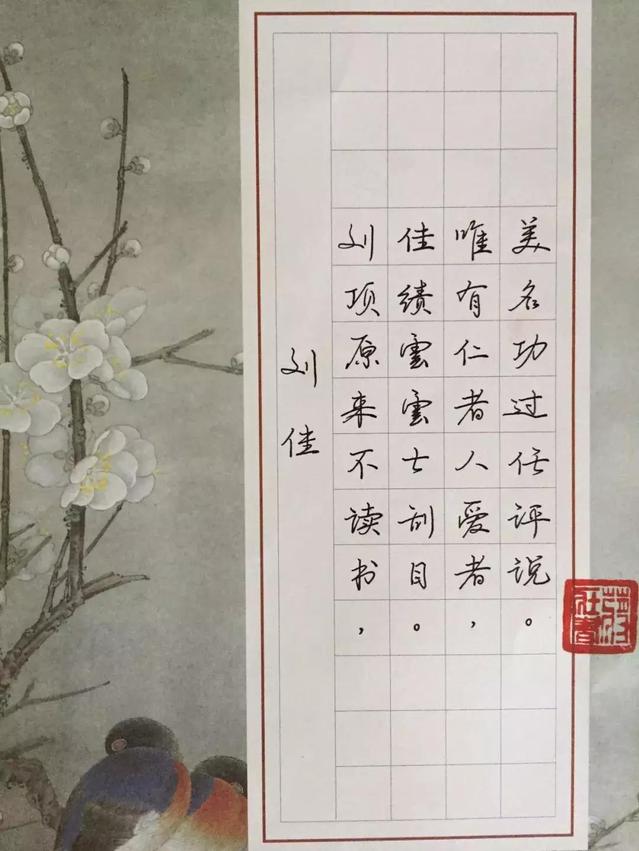 刘佳
刘项原来不读书，
佳绩雲雲士刮目。
唯有仁者人爱者，
美名功过任评说。